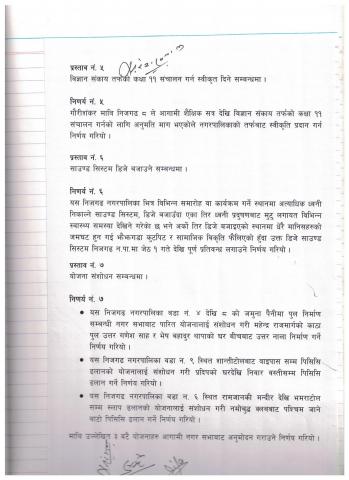 प्रस्ताव नं. ५
विज्ञान संकाय तर्फको कक्षा ११ संचालन गर्न स्वीकृत दिने सम्बन्धमा ।
निर्णय नं. ५
गौरीशंकर मावि निजगढ ८ ले आगामी शैक्षिक सत्र देखि विज्ञान संकाय तर्फको कक्षा ११
संचालन गर्नको लागि अनुमति माग भएकोले नगरपालिकाको तर्फबाट स्वीकृति प्रदान गर्न
निर्णय गरियो ।
प्रस्ताव नं. ६
साउण्ड सिस्टम डिजे बजाउने सम्बन्धमा ।
निर्णय नं. ६
यस निजगढ नगरपालिका भित्र विभिन्न समारोह वा कार्यक्रम गर्ने स्थानमा अत्याधिक ध्वनी
निकाल्ने साउण्ड सिस्टम, डिजे बजाउँदा एका तिर ध्वनी प्रदुषणबाट मुटु लगायत विभिन्न
स्वास्थ्य समस्या देखिने गरेको छ भने अर्को तिर डिजे बजाइएको स्थानमा धेरै मानिसहरुको
जमघट हुन गई झैझगडा कुटपिट र सामाजिक विकृति फैलिएको हुँदा उक्त डिजे साउण्ड
सिस्टम निजगढ न.पा.मा जेठ १ गते देखि पूर्ण प्रतिबन्ध लगाउने निर्णय गरियो ।
प्रस्ताव नं. ७
योजना संशोधन सम्बन्धमा ।
निर्णय नं. ७
● यस निजगढ नगरपालिका वडा नं. ४ देखि ८ को जमुना पैनीमा पुल निर्माण
सम्बन्धी नगर सभाबाट पारित योजनालाई संशोधन गरी महेन्द्र राजमार्गको काठा
पुल उत्तर गणेश साह र भेष बहादुर थापाको घर बीचबाट उत्तर नाला निर्माण गर्ने
निर्णय गरियो ।
● यस निजगढ नगरपालिका वडा नं. ९ स्थित शान्तीटोलबाट बाइपास सम्म पिसिसि
ढलानको योजनालाई संशोधन गरी प्रदिपको घरदेखि निवार बस्तीसम्म पिसिसि
ढलान गर्ने निर्णय गरियो ।
● यस निजगढ नगरपालिका वडा नं. ६ स्थित रामजानकी मन्दीर देखि भमराटोल
सम्म स्लाप ढलानको योजनालाई संशोधन गरी नमोबुद्ध क्लबबाट पश्चिम जाने
बाटो पिसिसि ढलान गर्ने निर्णय गरियो ।
माथि उल्लेखित ३ वटै योजनाहरु आगामी नगर सभाबाट अनुमोदन गराउने निर्णय गरियो ।